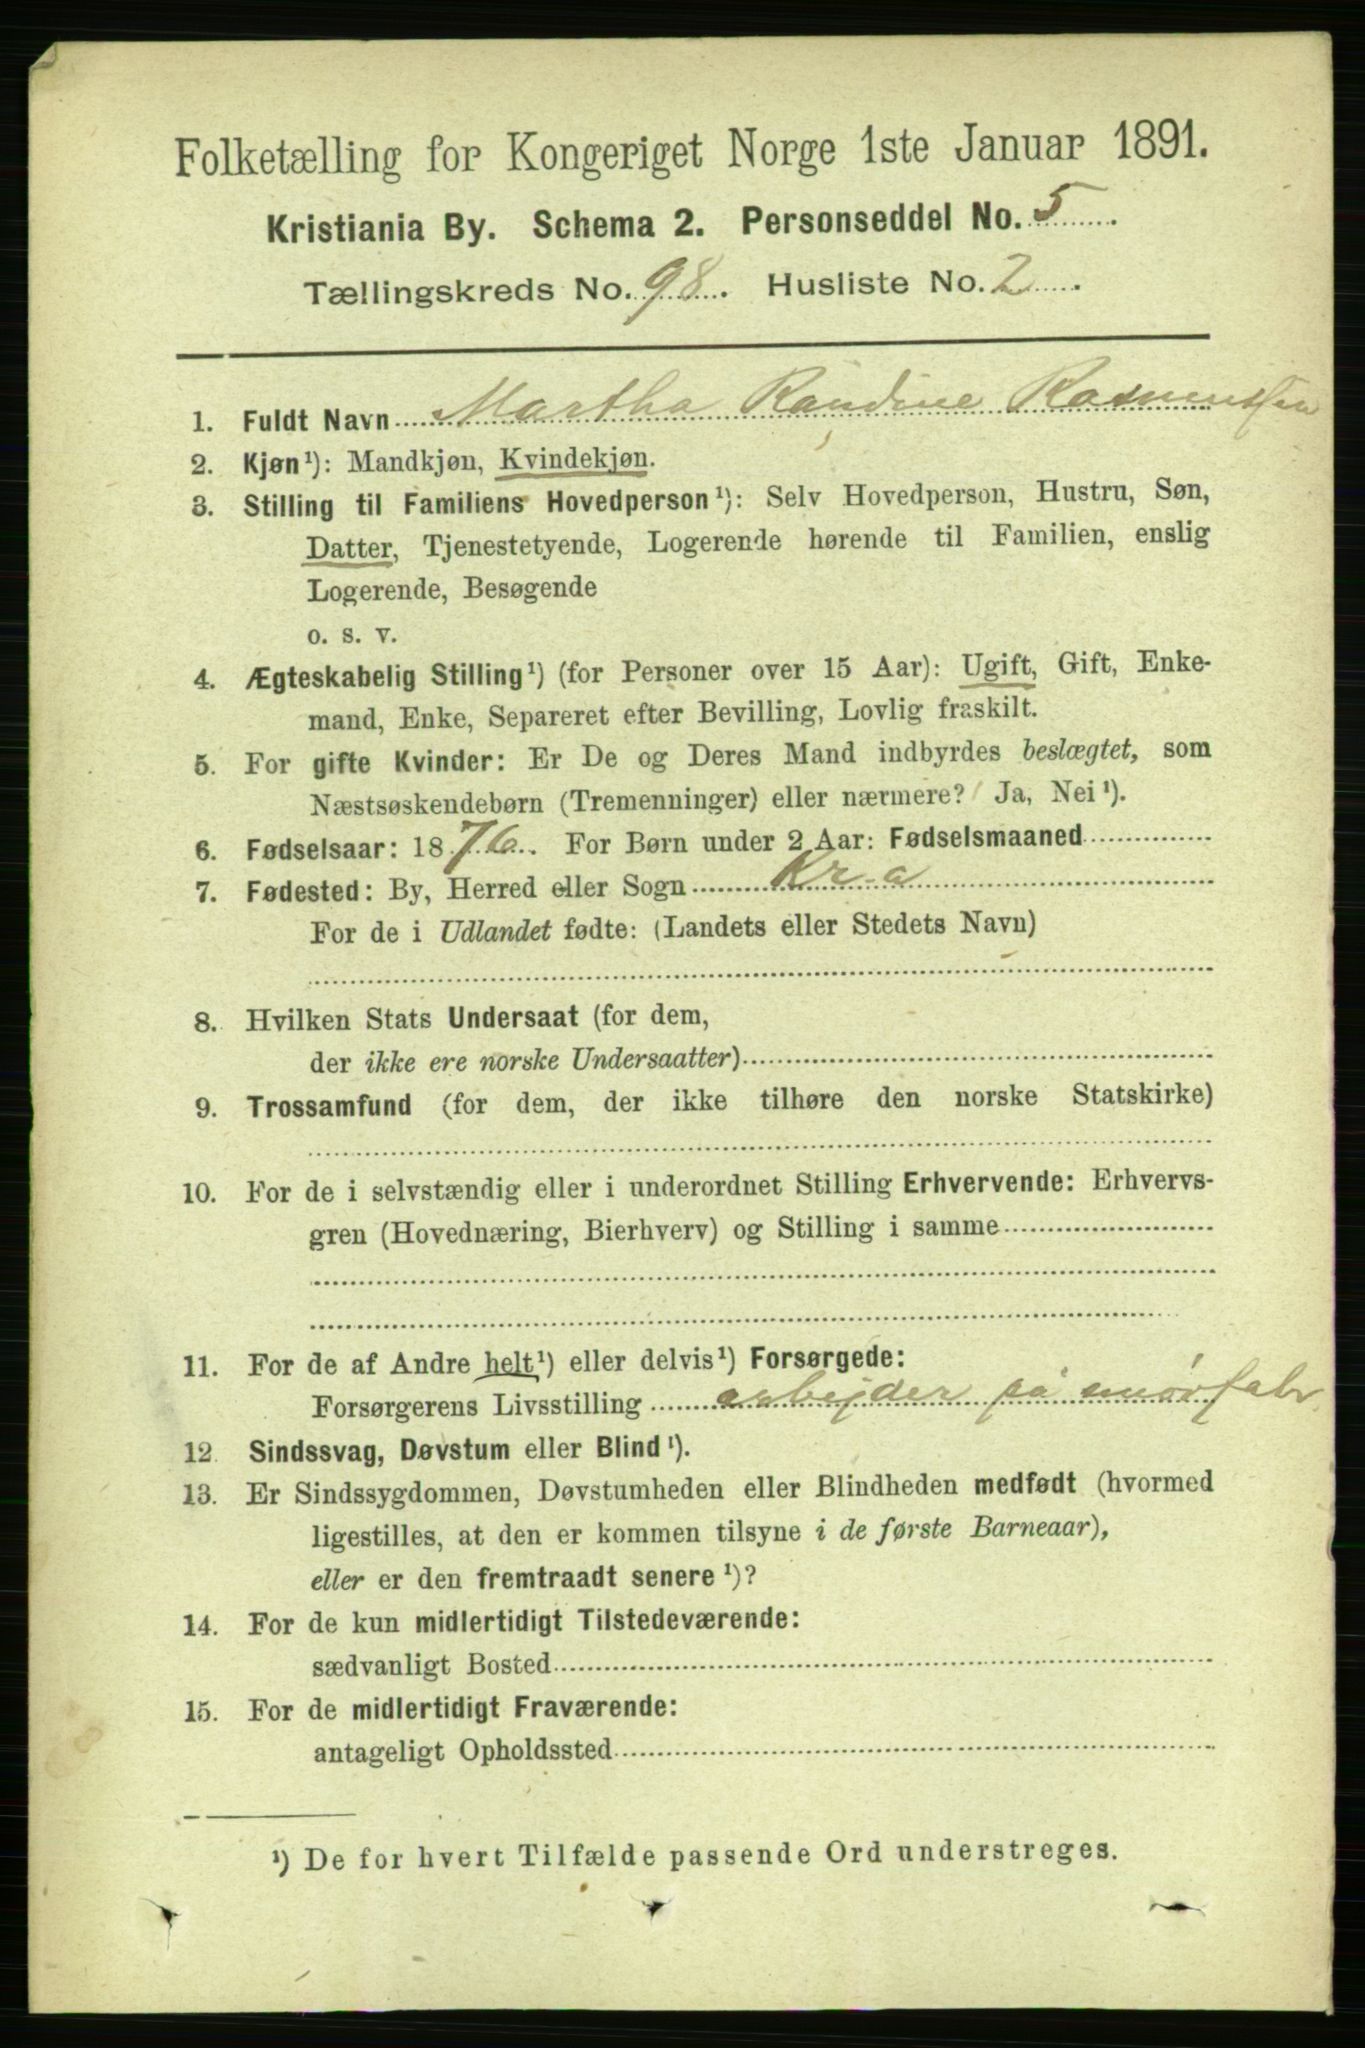 Folketælling for Kongeriget Norge 1ste Januar 1891.
Kristiania By. Schema 2. Personseddel No. 5.
Tællingskreds No. 98. Husliste No. 2.
1. Fuldt Navn Martha Randine Rasmussen
2. Kjøn¹): Mandkjøn, Kvindekjøn.
3. Stilling til Familiens Hovedperson¹): Selv Hovedperson, Hustru, Søn,
Datter, Tjenestetyende, Logerende hørende til Familien, enslig
Logerende, Besøgende
o. s. v.
4. Ægteskabelig Stilling¹) (for Personer over 15 Aar): Ugift, Gift, Enke-
mand, Enke, Separeret efter Bevilling, Lovlig fraskilt.
5. For gifte Kvinder: Er De og Deres Mand indbyrdes beslægtet, som
Næstsøskendebørn (Tremenninger) eller nærmere? Ja, Nei¹).
6. Fødselsaar: 1876. For Børn under 2 Aar: Fødselsmaaned
7. Fødested: By, Herred eller Sogn Kr-a
For de i Udlandet fødte: (Landets eller Stedets Navn)
8. Hvilken Stats Undersaat (for dem,
der ikke ere norske Undersaatter)
9. Trossamfund (for dem, der ikke tilhøre den norske Statskirke)
10. For de i selvstændig eller i underordnet Stilling Erhvervende: Erhvervs-
gren (Hovednæring, Bierhverv) og Stilling i samme
11. For de af Andre helt¹) eller delvis¹) Forsørgede:
Forsørgerens Livsstilling arbejder på smørfabr
12. Sindssvag, Døvstum eller Blind¹).
13. Er Sindssygdommen, Døvstumheden eller Blindheden medfødt (hvormed
ligestilles, at den er kommen tilsyne i de første Barneaar),
eller er den fremtraadt senere¹)?
14. For de kun midlertidigt Tilstedeværende:
sædvanligt Bosted
15. For de midlertidigt Fraværende:
antageligt Opholdssted
¹) De for hvert Tilfælde passende Ord understreges.